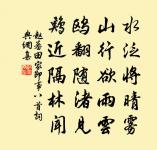 水泛將晴霧
山行欲雨雲
鷗翻隨渚見
鷄近隔林聞
趙蕃田家即事八首詞
典網集